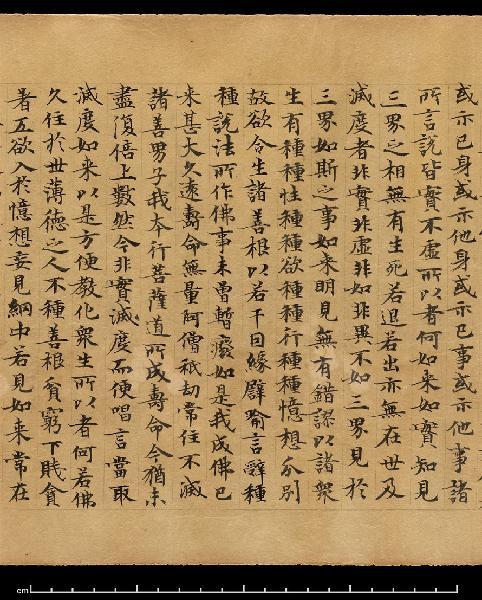 或示己身或示他身或示己事或示他事諸
所言說皆實不虛所以者何如來如實知見
三界之相無有生死若退若出亦無在世及
滅度者非實非虛非如非異不如三界見於
三界如斯之事如來明見無有錯謬以諸衆
生有種種性種種欲種種行種種憶想分別
故欲令生諸善根以若干因緣譬喻言辭種
種說法所作佛事未曾暫廢如是我成佛已
來甚大久遠壽命無量阿僧祇劫常住不滅
諸善男子我本行菩薩道所成壽命今猶未
盡復倍上數然今非實滅度而便唱言當取
滅度如來以是方便教化衆生所以者何若佛
久住於世薄德之人不種善根貧窮下賤貪
著五欲入於憶想妄見網中若見如來常在
cm